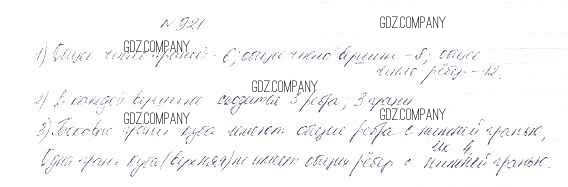 N 921 GDZ.COMPANY
1) Общее число граней - 6; общее число вершин - 8; общее
GDZ.COMPANY
число рёбер - 12.
GDZ.COMPANY
2) В каждой вершине сходится 3 ребра, 3 грани
GDZ.COMPANY GDZ.COMPANY
3) Боковые грани куба имеют общие ребра с нижней гранью,
их 4,
Одна грань куба (верхняя) не имеет общих рёбер с нижней гранью.